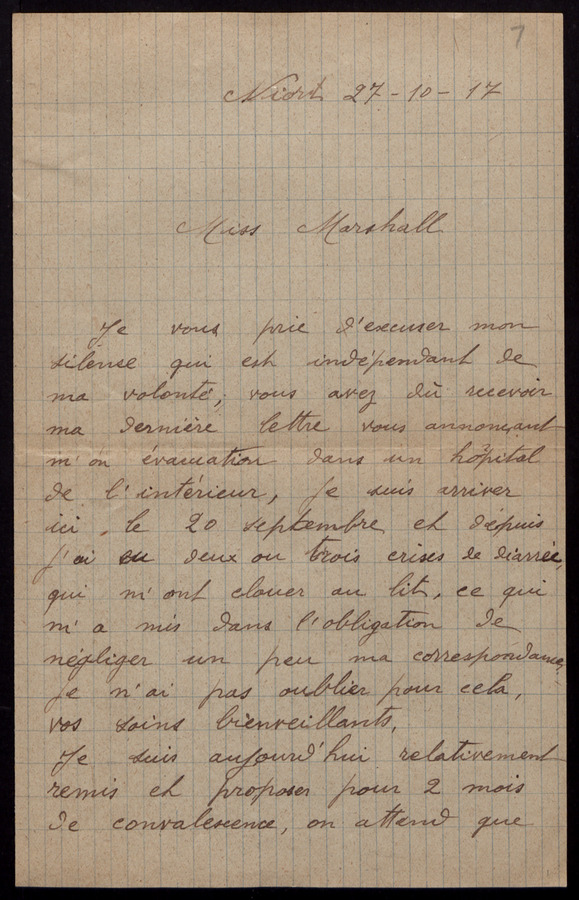 7
Niort 27-10-17
Miss Marshall
Je vous prie d'excuser mon
silense qui est indépendant de
ma volonté, vous avez dû recevoir
ma dernière lettre vous annonçant
m'on évacuation dans un hôpital
de l'intérieur, je suis arriver
ici, le 20 septembre et dépuis
j'ai eu deux ou trois crises de diarrée,
qui m'ont clouer au lit, ce qui
m'a mis dans l'obligation de
négliger un peu ma correspondance,
je n'ai pas oublier pour cela,
vos soins bienveillants.
Je suis aujourd'hui relativement
remis et proposer pour 2 mois
de convalescence, on attend que